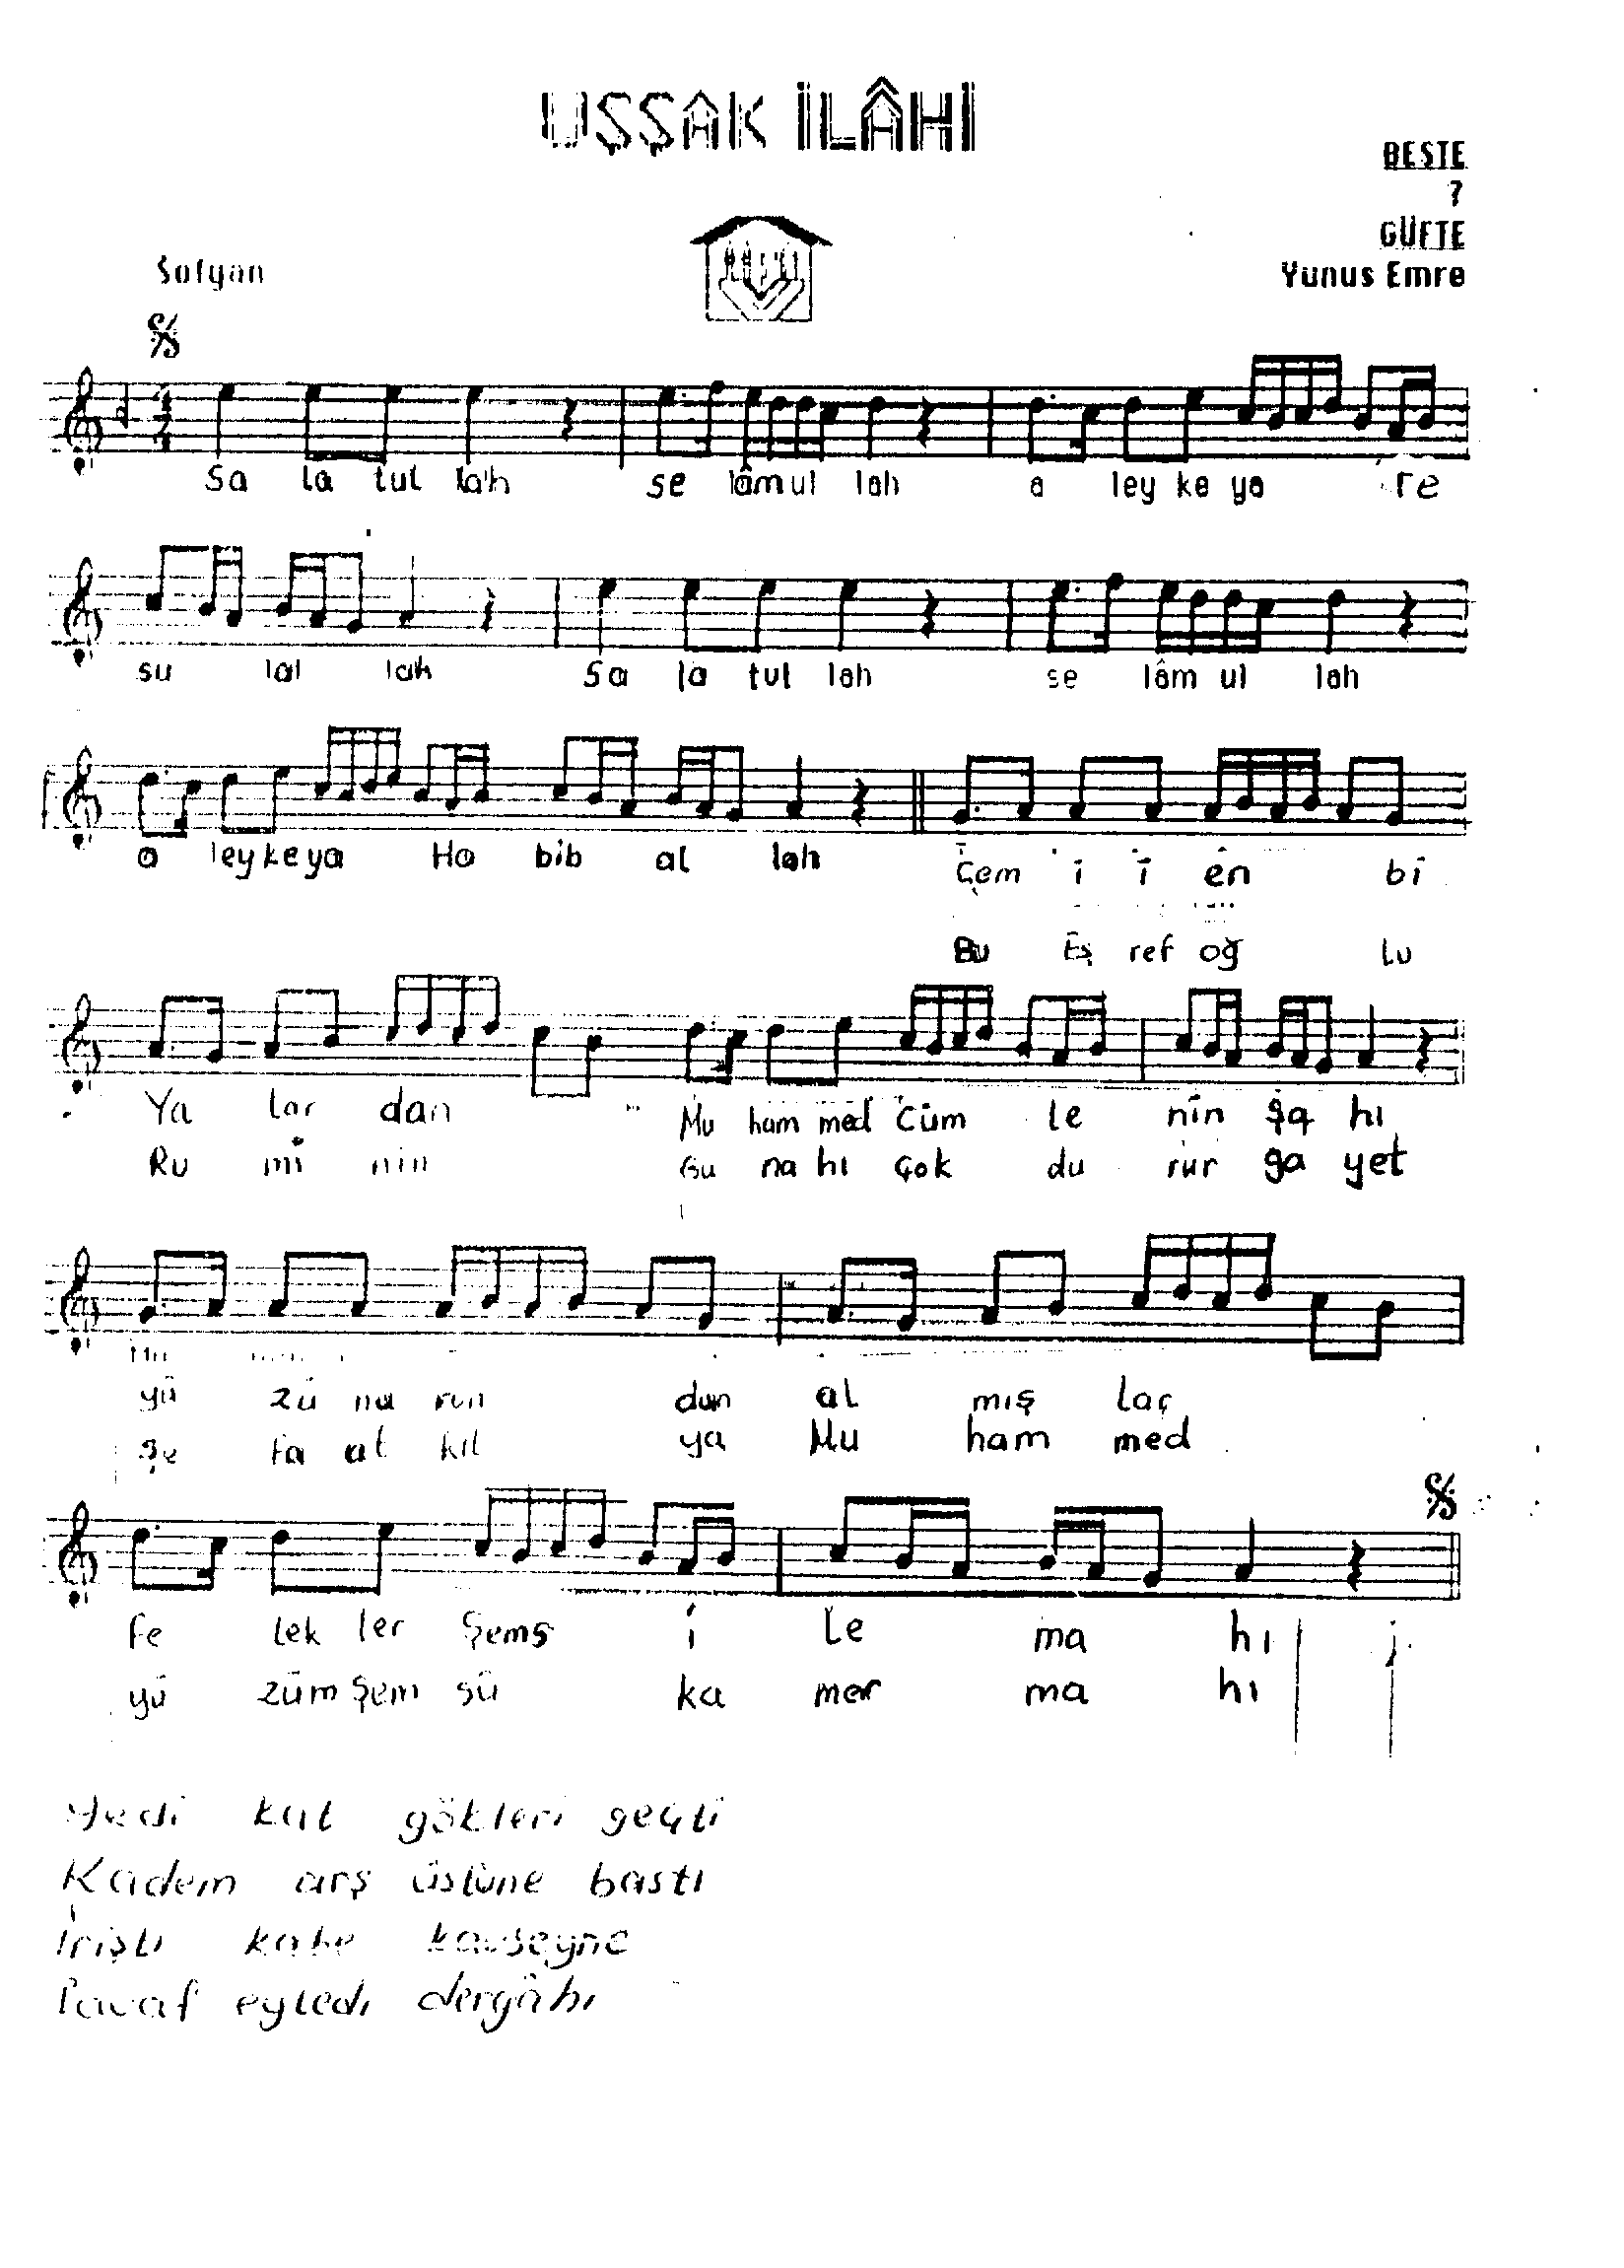 UŞŞÂK İLÂHİ
BESTE
?
GÜFTE
Sofyan
Yunus Emre
4
4
Sa la tul lah se lâmul lah a ley ke ya re
su lal lah Sa la tul lah se lâm ul lah
a ley ke ya Ha bib al lah Çem i i en bi
Bu Eş ref oğ lu
Ya lar dan Mu ham med Cüm le nin şa hı
Ru mi nin Gu na hı çok du rur ga yet
yü zü nu run dan al mış laç
şe fa at kıl ya Mu ham med
fe lek ler Şems i le ma hı
yü züm Şem sü ka mer ma hı
Yedi kat gökleri geçti
Kadem arş üstüne bastı
İrişti kabe kavseyne
Tavaf eyledi dergâhı